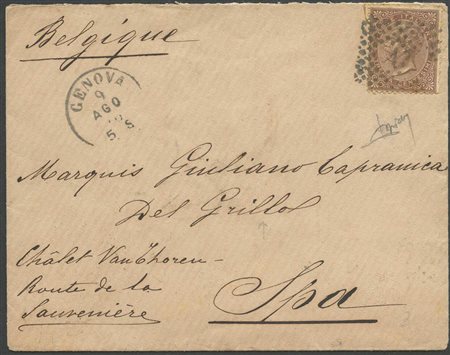 Belgique
GENOVA
9
AGO
5 S
Marquis Giuliano Capranica
Del Grillo
Châlet Van Thoren -
Route de la
Sauvenière
Spa